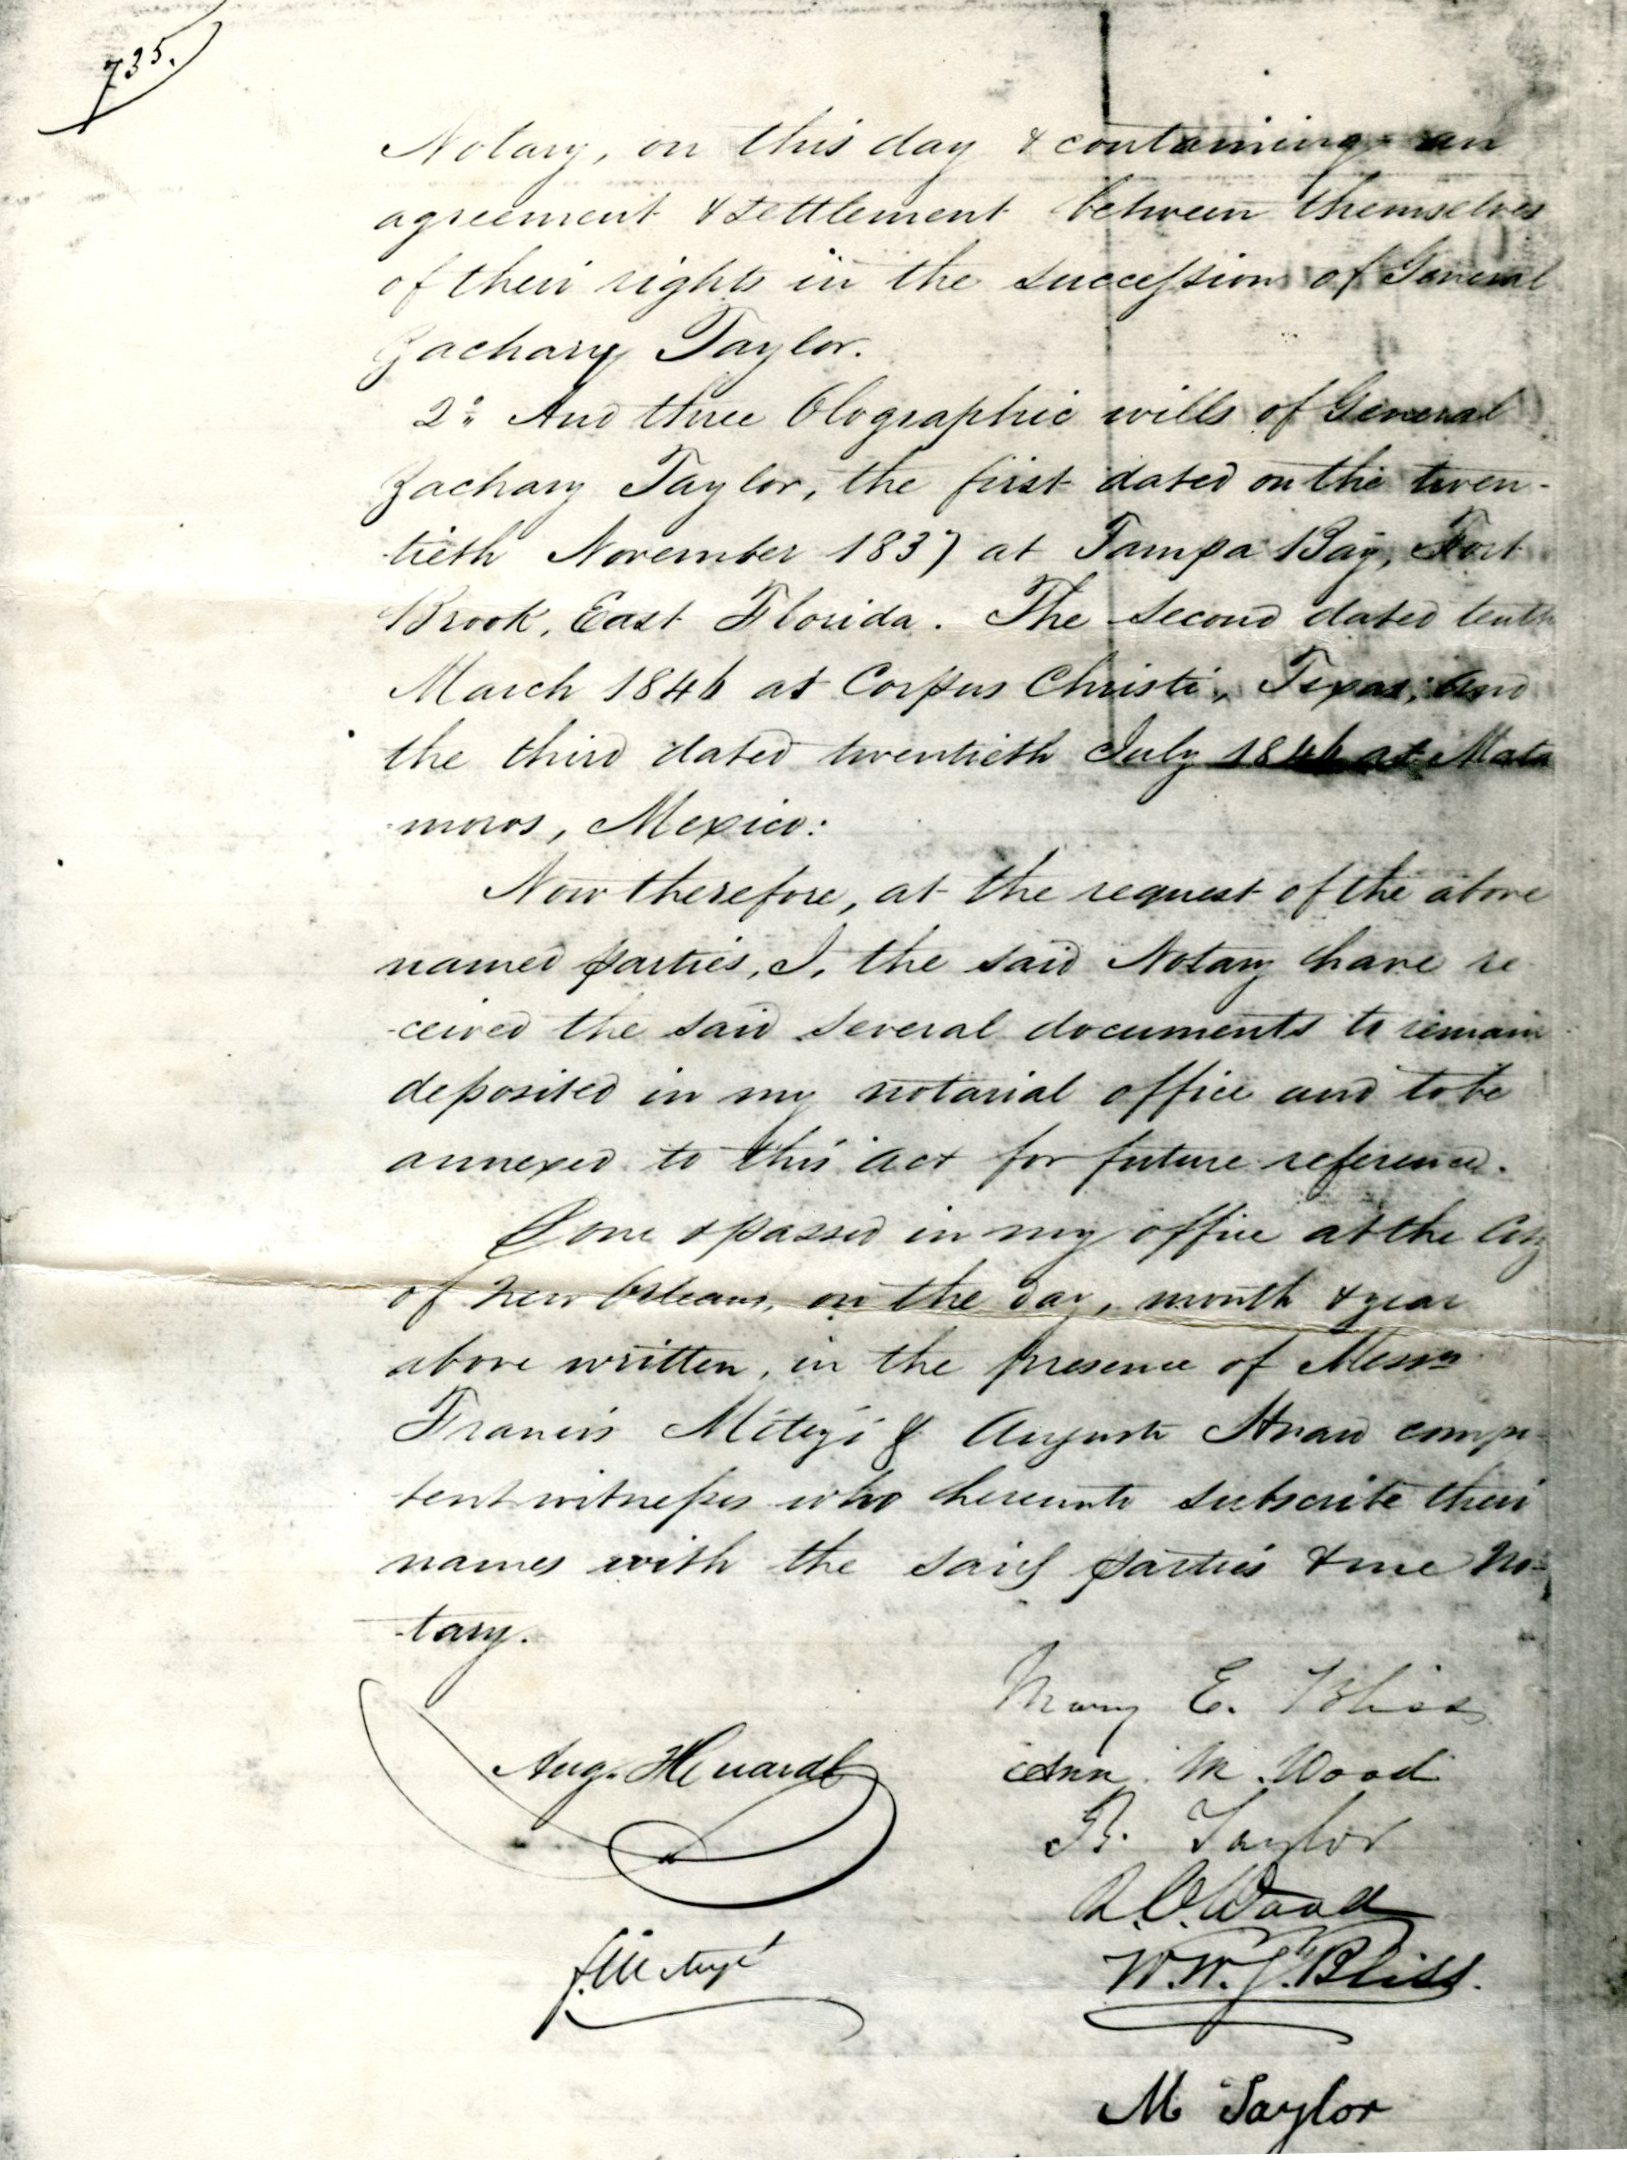 735.
Notary, on this day & containing an
agreement & settlement between themselves
of their rights in the succession of General
Zachary Taylor.
2º And three Olographic wills of General
Zachary Taylor, the first dated on the twen-
tieth November 1837 at Tampa Bay, Fort
Brook, East Florida. The second dated tenth
March 1846 at Corpus Christi, Texas; and
the third dated twentieth July 1846 at Mata
-moros, Mexico:
Now therefore, at the request of the above
named parties, I, the said Notary have re-
-ceived the said several documents to remain
deposited in my notarial office and to be
annexed to this act for future reference.
Done & passed in my office at the City
of New Orleans, on the day, month & year
above written, in the presence of Messrs
Francis Mitegé & Auguste compe-
tent witnesses who hereunto subscribe their
names with the said parties & me No-
-tary.
Mary E. Bliss
Aug. Huard
Ann M. Wood
R. Taylor
R. C. Wood
W. W. S. Bliss.
M Taylor